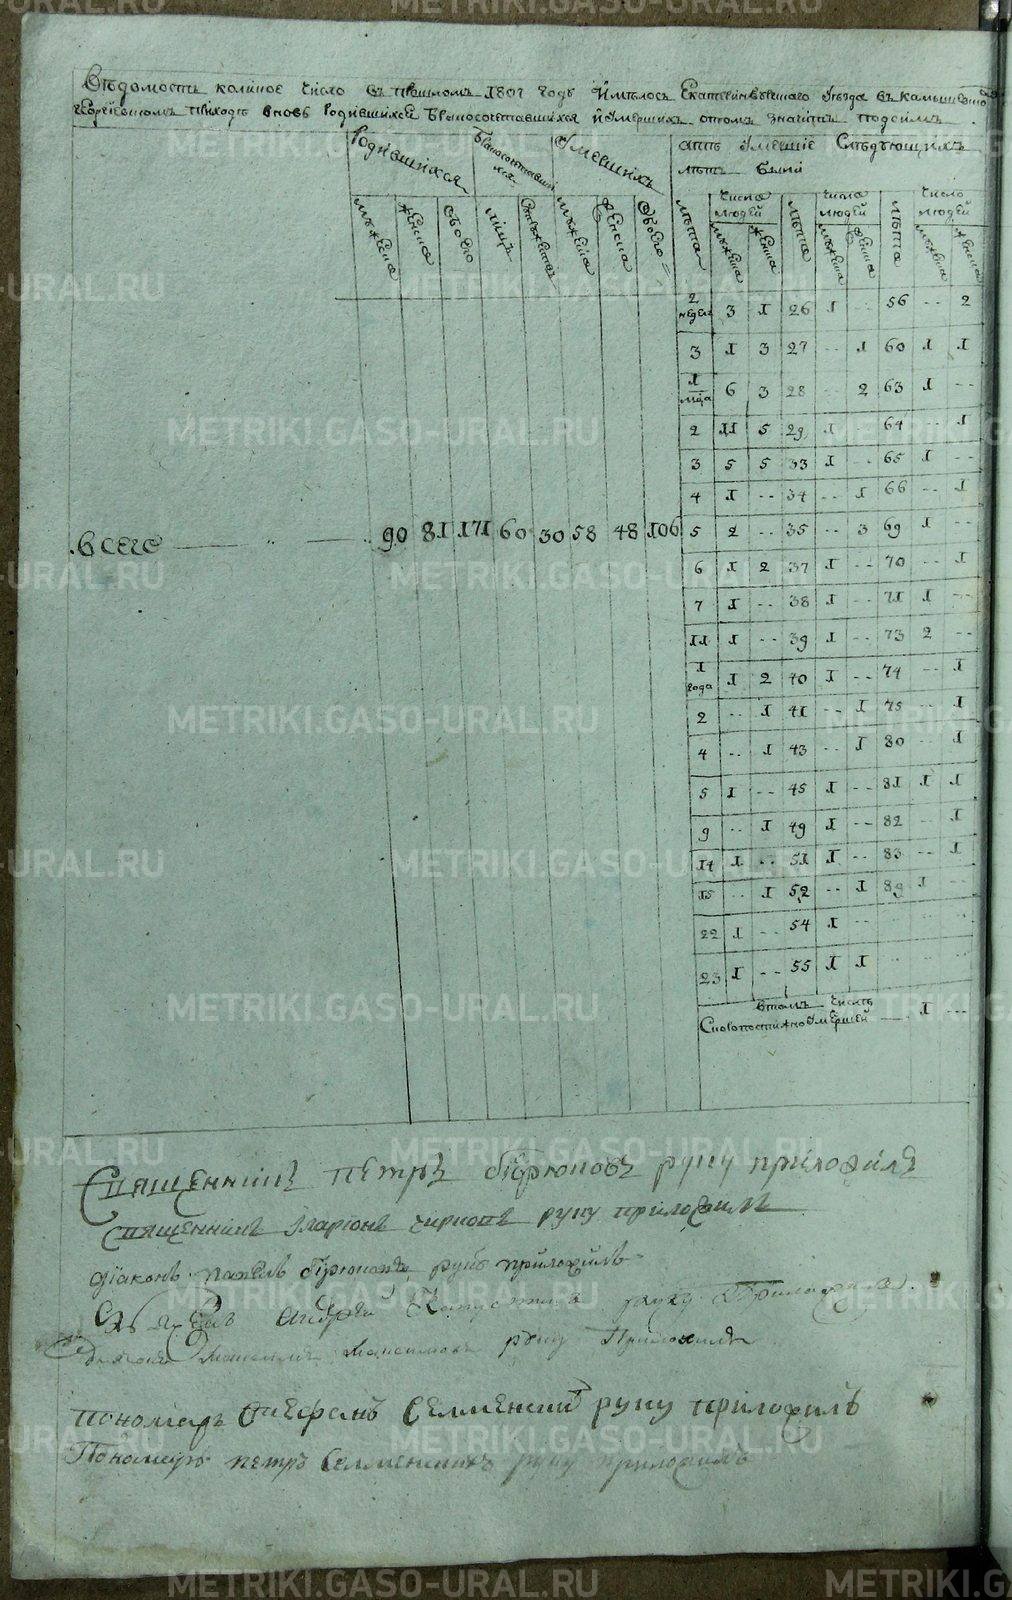 Вѣдомость коликое число въ прошломъ 1801 году имѣлось Екатеринбургскаго уѣзда въ
Георгiевскомъ приходѣ вновь родившихся бракосочетавшихся и умершихъ о томъ значитъ подъ симъ
Родившихся
Бракосочетавшихся
Умершихъ
а лѣтъ умершiе слѣдующихъ
лѣтъ были
мужеска
женска
обоего
лицъ
мужеска
женска
обоего
лѣта числа людей лѣта числа людей лѣта число людей
мужеска женска мужеска женска мужеска женска
2 недел 3 1 26 1 -- 56 -- 2
3 1 3 27 -- 1 60 1 1
1 мца 6 3 28 -- 2 63 1 --
2 11 5 29 1 -- 64 -- 1
3 5 5 33 1 -- 65 1 --
4 1 -- 34 -- 1 66 -- 1
всего 90 81 171 60 30 58 48 106
5 2 -- 35 -- 3 69 1 --
6 1 2 37 1 -- 70 -- 1
7 1 -- 38 1 -- 71 1 --
11 1 -- 39 1 -- 73 2 --
1 года 1 2 40 1 -- 74 -- 1
2 -- 1 41 -- 1 75 -- 1
4 -- 1 43 -- 1 80 -- 1
5 1 -- 45 1 -- 81 1 1
9 -- 1 49 1 -- 82 -- 1
14 1 -- 51 1 -- 83 -- 1
15 -- 1 52 -- 1 89 1 --
22 1 -- 54 1 --
23 1 -- 55 1 1
въ томъ числѣ
скоропостижно умершей 1 --
Священникъ Петръ Бирюковъ руку приложилъ
Священникъ Иларiонъ руку приложилъ
дiаконъ Павелъ Бирюковъ руку приложилъ
Андрей руку приложилъ
Максимъ Максимовъ руку приложилъ
пономарь Стефанъ Селменскiй руку приложилъ
Пономарь петръ Селменскихъ руку приложилъ
METRIKI.GASO-URAL.RU